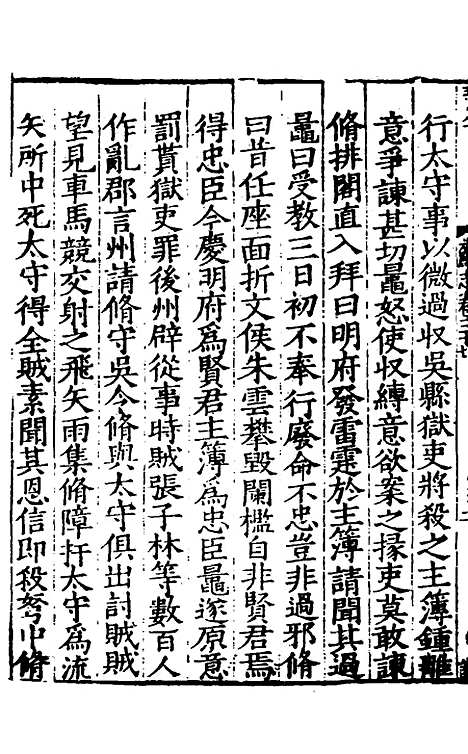 行太守事以微過収吳縣獄吏將殺之主簿鍾離
意爭諫甚切鼂怒使収縛意欲案之掾吏莫敢諫
脩排閤直入拜曰明府發雷霆於主簿請聞其過
鼂曰受教三日初不奉行廢命不忠豈非過邪脩
曰昔任座面折文侯朱雲攀毀闌檻自非賢君焉
得忠臣今慶明府爲賢君主簿爲忠臣鼂遂原意
罰貰獄吏罪後州辟從事時賊張子林等數百人
作亂郡言州請脩守吳令脩與太守俱出討賊賊
望見車馬競交射之飛矢雨集脩障扞太守爲流
矢所中死太守得全賊素聞其恩信即殺弩中脩